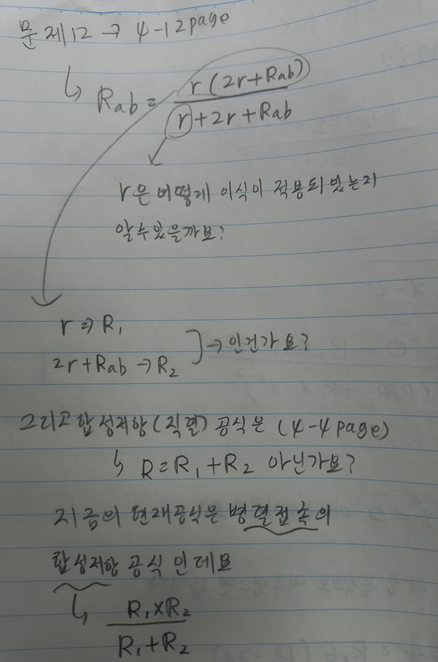 문제12 → 4-12page
↳ Rab = r(2r+Rab) / r+2r+Rab
r은 어떻게 이식이 적용되었는지
알수있을까요?
r ⇒ R₁
2r+Rab → R₂ ] → 인건가요?
그리고 합성저항(직렬) 공식은 (4-4page)
↳ R=R₁+R₂ 아닌가요?
지금의 현재공식은 병렬접속의
합성저항 공식 인데요
↳ R₁×R₂ / R₁+R₂